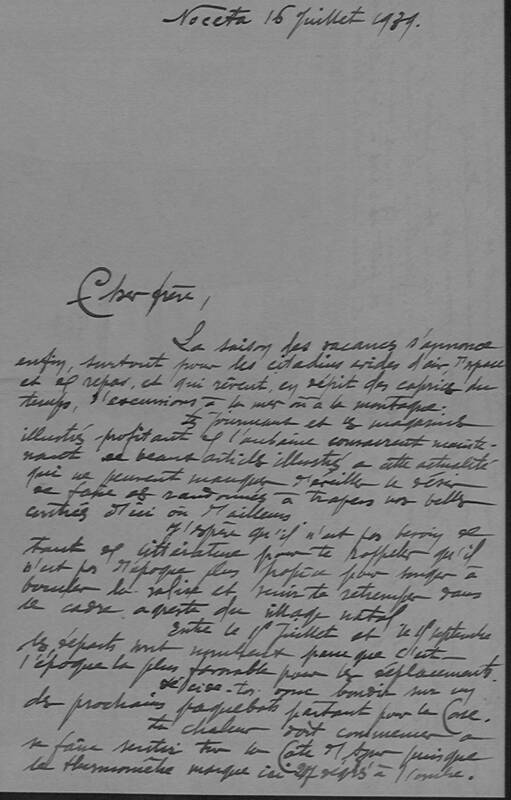 Noceta 16 Juillet 1939.
Cher frère,
La saison des vacances s'annonce
enfin, surtout pour les citadins avides d'air, d'espace
et de repos, et qui rêvent, en dépit des caprices du
temps, d'excursions à la mer ou à la montagne.
Les journaux et les magazines
illustrés profitant de l'aubaine consacrent mainte-
nant de beaux articles illustrés à cette actualité
qui ne peuvent manquer d'éveiller le désir
de faire des randonnées à travers nos belles
contrées d'ici ou d'ailleurs
J'espère qu'il n'est pas besoin de
tant de littérature pour te rappeler qu'il
n'est pas d'époque plus propice pour songer à
boucler la valise et venir te retremper dans
le cadre agreste du village natal
Entre le 1er Juillet et le 1er Septembre
les départs sont nombreux parce que c'est
l'époque la plus favorable pour les déplacements.
Décide-toi donc bondir sur un
des prochains paquebots partant pour la Corse.
La chaleur doit commencer à
se faire sentir sur la Côte d'Azur puisque
le thermomètre marque ici 27 degrés à l'ombre.